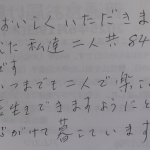 おいしくいただきま
した 私達二人共84
です
いつまでも二人で楽し
生をできますようにと
心がけて暮しています